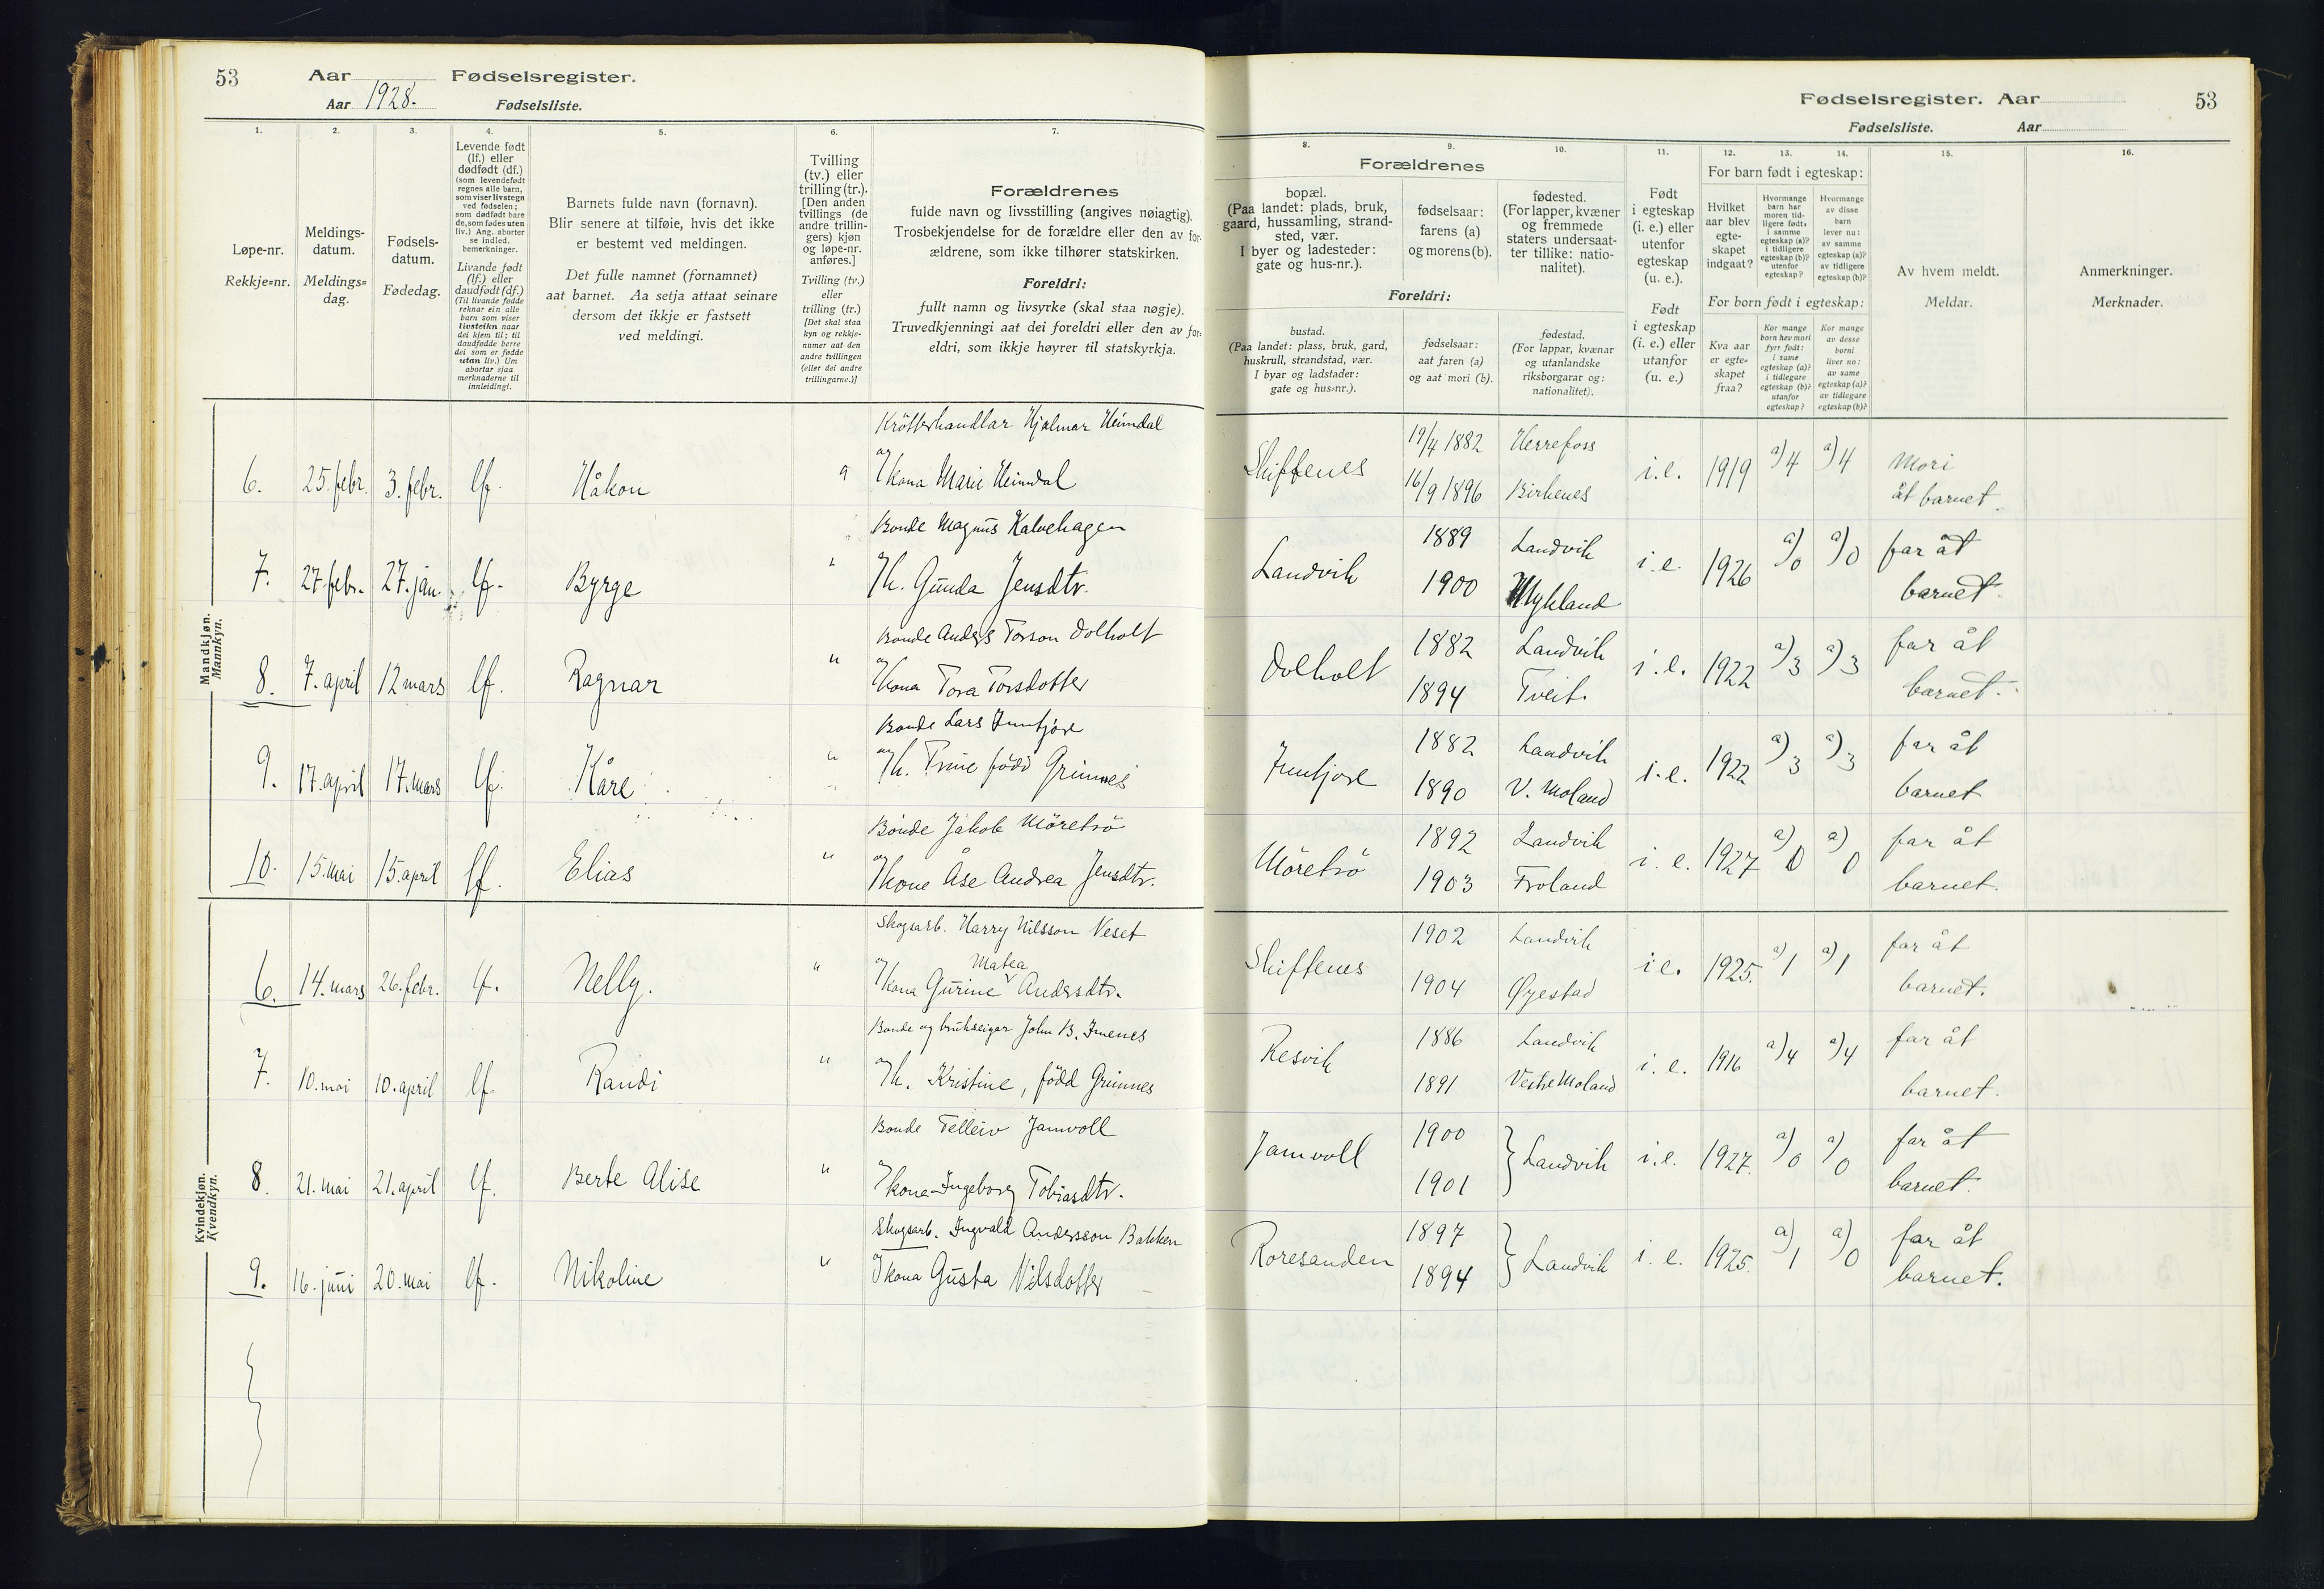 53 Aar Fødselsregister.
Aar 1928. Fødselsliste.
1. 2. 3. 4. 5. 6. 7.
Løpe-nr.
Rekkje=nr.
Meldings-
datum.
Meldings=
dag.
Fødsels-
datum.
Fødedag.
Levende født
(lf.) eller
dødfødt (df.)
(som levendefødt
regnes alle barn,
som viser livstegn
ved fødselen;
som dødfødt bare
de, som fødes uten
liv.) Ang. aborter
se indled.
bemerkninger.
Livande født
(lf.) eller
daudfødt (df.)
(Til livande fødde
reknar ein alle
barn som viser
livsteikn naar
dei kjem til; til
daudfødde berre
dei som er fødde
utan liv.) Um
abortar sjaa
merknaderne til
innleidingi.
Barnets fulde navn (fornavn).
Blir senere at tilføie, hvis det ikke
er bestemt ved meldingen.
Det fulle namnet (fornamnet)
aat barnet. Aa setja attaat seinare
dersom det ikkje er fastsett
ved meldingi.
Tvilling
(tv.) eller
trilling (tr.).
[Den anden
tvillings (de
andre trillin-
gers) kjøn
og løpe-nr.
anføres.]
Tvilling (tv.)
eller
trilling (tr.)
[Det skal staa
kyn og rekkje-
numer aat den
andre tvillingen
(eller dei andre
trillingarne.)]
Forældrenes
fulde navn og livsstilling (angives nøiagtig).
Trosbekjendelse for de forældre eller den av for-
ældrene, som ikke tilhører statskirken.
Foreldri:
fullt namn og livsyrke (skal staa nøgje).
Truvedkjenningi aat dei foreldri eller den av for=
eldri, som ikkje høyrer til statskyrkja.
Mandkjøn.
Mannkyn.
Krötterhandlar Hjalmar Heimdal
6. 25. febr. 3. febr. lf. Håkon " og kona Marie Heimdal
Bonde Magnus Kalvehagen
7. 27. febr. 27. jan. lf. Byrge " og k. Gunda Jensdtr.
Bonde Anders Torson Dolholt
8. 7. april 12 mars lf. Ragnar " og kona Tora Torsdotter
Bonde Lars Inntjore
9. 17. april 17. mars lf. Kåre " og k. Trine född Grimnes
Bonde Jakob Möretrö
10. 15. mai 15. april lf. Elias " og kone Åse Andrea Jensdtr.
Kvindekjøn.
Kvendkyn.
Skogsarb. Harry Nilsson Veset
Matea
6. 14. mars 26. febr. lf. Nelly. " og kona Gurine Andersdtr.
Bonde og brukseigar John B. Imenes
7. 10. mai 10. april lf. Randi " og k. Kristine, född Grimnes
Bonde Telleiv Jamvoll
8. 21. mai 21. april lf. Berte Alise " og kona Ingeborg Tobiasdtr.
Skogsarb. Ingvald Andersson Bakken
9. 16. juni 20. mai lf. Nikoline " og kona Gusta Nilsdotter
Fødselsregister. Aar 53
Fødselsliste. Aar
8. 9. 10. 11. 12. 13. 14. 15. 16.
Forældrenes
bopæl.
(Paa landet: plads, bruk,
gaard, hussamling, strand-
sted, vær.
I byer og ladesteder:
gate og hus-nr.).
fødselsaar:
farens (a)
og morens (b).
fødested.
(For lapper, kvæner
og fremmede
staters undersaat-
ter tillike: natio-
nalitet).
Foreldri:
bustad.
(Paa landet: plass, bruk, gard,
huskrull, strandstad, vær.
I byar og ladstader:
gate og hus=nr.).
fødselsaar:
aat faren (a)
og aat mori (b).
fødestad.
(For lappar, kvænar
og utanlandske
riksborgarar og:
nationalitet).
Født
i egteskap
(i. e.) eller
utenfor
egteskap
(u. e.).
Født
i egteskap
(i. e.) eller
utanfor
(u. e.)
For barn født i egteskap:
Hvilket
aar blev
egte-
skapet
indgaat?
Hvormange
barn har
moren tid-
ligere født:
i samme
egteskap (a)?
i tidligere
egteskap (b)?
utenfor
egteskap?
Hvormange
av disse
barn
lever nu:
av samme
egteskap (a)?
av tidligere
egteskap (b)?
For born født i egteskap:
Kva aar
er egte=
skapet
fraa?
Kor mange
born hev mori
fyrr født:
i same
egteskap (a)?
i tidlegare
egteskap (b)?
utanfor
egteskap?
Kor mange
av desse
borni
liver no:
av same
egteskap (a)?
av tidlegare
egteskap (b)?
Av hvem meldt.
Meldar.
Anmerkninger.
Merknader.
19/4 1882 Herrefoss
Skiftenes i.e. 1919 a) 4 a) 4 Mori
16/9 1896 Birkenes åt barnet.
1889 Landvik far åt
Landvik i.e. 1926 a) 0 a) 0
1900 Mykland barnet.
1882 Landvik far åt
Dolholt i.e. 1922 a) 3 a) 3
1894 Tveit. barnet.
1882 Landvik far åt
Inntjore i.e. 1922 a) 3 a) 3
1890 V. Moland barnet
1892 Landvik far åt
Möretrö i. e. 1927 a) 0 a) 0
1903 Froland barnet.
1902 Landvik far åt
Skiftenes i.e. 1925. a) 1 a) 1
1904 Øyestad barnet.
1886 Landvik far åt
Resvik i. e. 1916 a) 4 a) 4
1891 Vestre Moland barnet.
1900 far åt
Jamvoll Landvik i.e. 1927. a) 0 a) 0
1901 barnet.
1897 far åt
Roresanden Landvik i. e. 1925. a) 1 a) 0
1894 barnet.